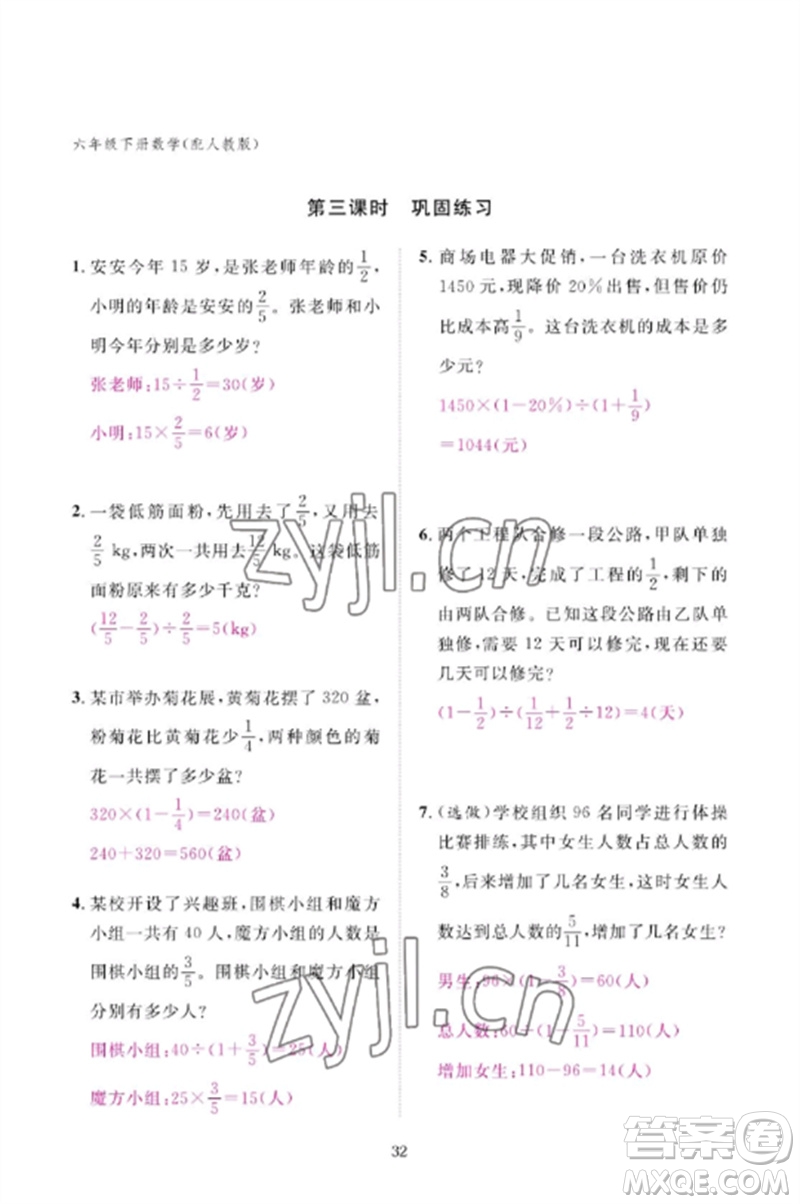 六年级下册数学(配人教版)
第三课时 巩固练习
1. 安安今年 15 岁,是张老师年龄的1/2,
小明的年龄是安安的2/5。张老师和小
明今年分别是多少岁?
张老师:15÷1/2=30(岁)
小明:15×2/5=6(岁)
2. 一袋低筋面粉,先用去了2/5,又用去
2/5 kg,两次一共用去12/5 kg。这袋低筋
面粉原来有多少千克?
(12/5-2/5)÷2/5=5(kg)
3. 某市举办菊花展,黄菊花摆了 320 盆,
粉菊花比黄菊花少1/4,两种颜色的菊
花一共摆了多少盆?
320×(1-1/4)=240(盆)
240+320=560(盆)
4. 某校开设了兴趣班,围棋小组和魔方
小组一共有 40 人,魔方小组的人数是
围棋小组的3/5。围棋小组和魔方小组
分别有多少人?
围棋小组:40÷(1+3/5)=25(人)
魔方小组:25×3/5=15(人)
5. 商场电器大促销,一台洗衣机原价
1450 元,现降价 20%出售,但售价仍
比成本高1/9。这台洗衣机的成本是多
少元?
1450×(1-20%)÷(1+1/9)
=1044(元)
6. 两个工程队合修一段公路,甲队单独
修了 12 天,完成了工程的1/2,剩下的
由两队合修。已知这段公路由乙队单
独修,需要 12 天可以修完,现在还要
几天可以修完?
(1-1/2)÷(1/12+1/2÷12)=4(天)
7. (选做)学校组织 96 名同学进行体操
比赛排练,其中女生人数占总人数的
3/8,后来增加了几名女生,这时女生人
数达到总人数的5/11,增加了几名女生?
男生:96×(1-3/8)=60(人)
总人数:60÷(1-5/11)=110(人)
增加女生:110-96=14(人)
32
zyjl.cn
zyjl.cn
答案卷
MXQE.COM